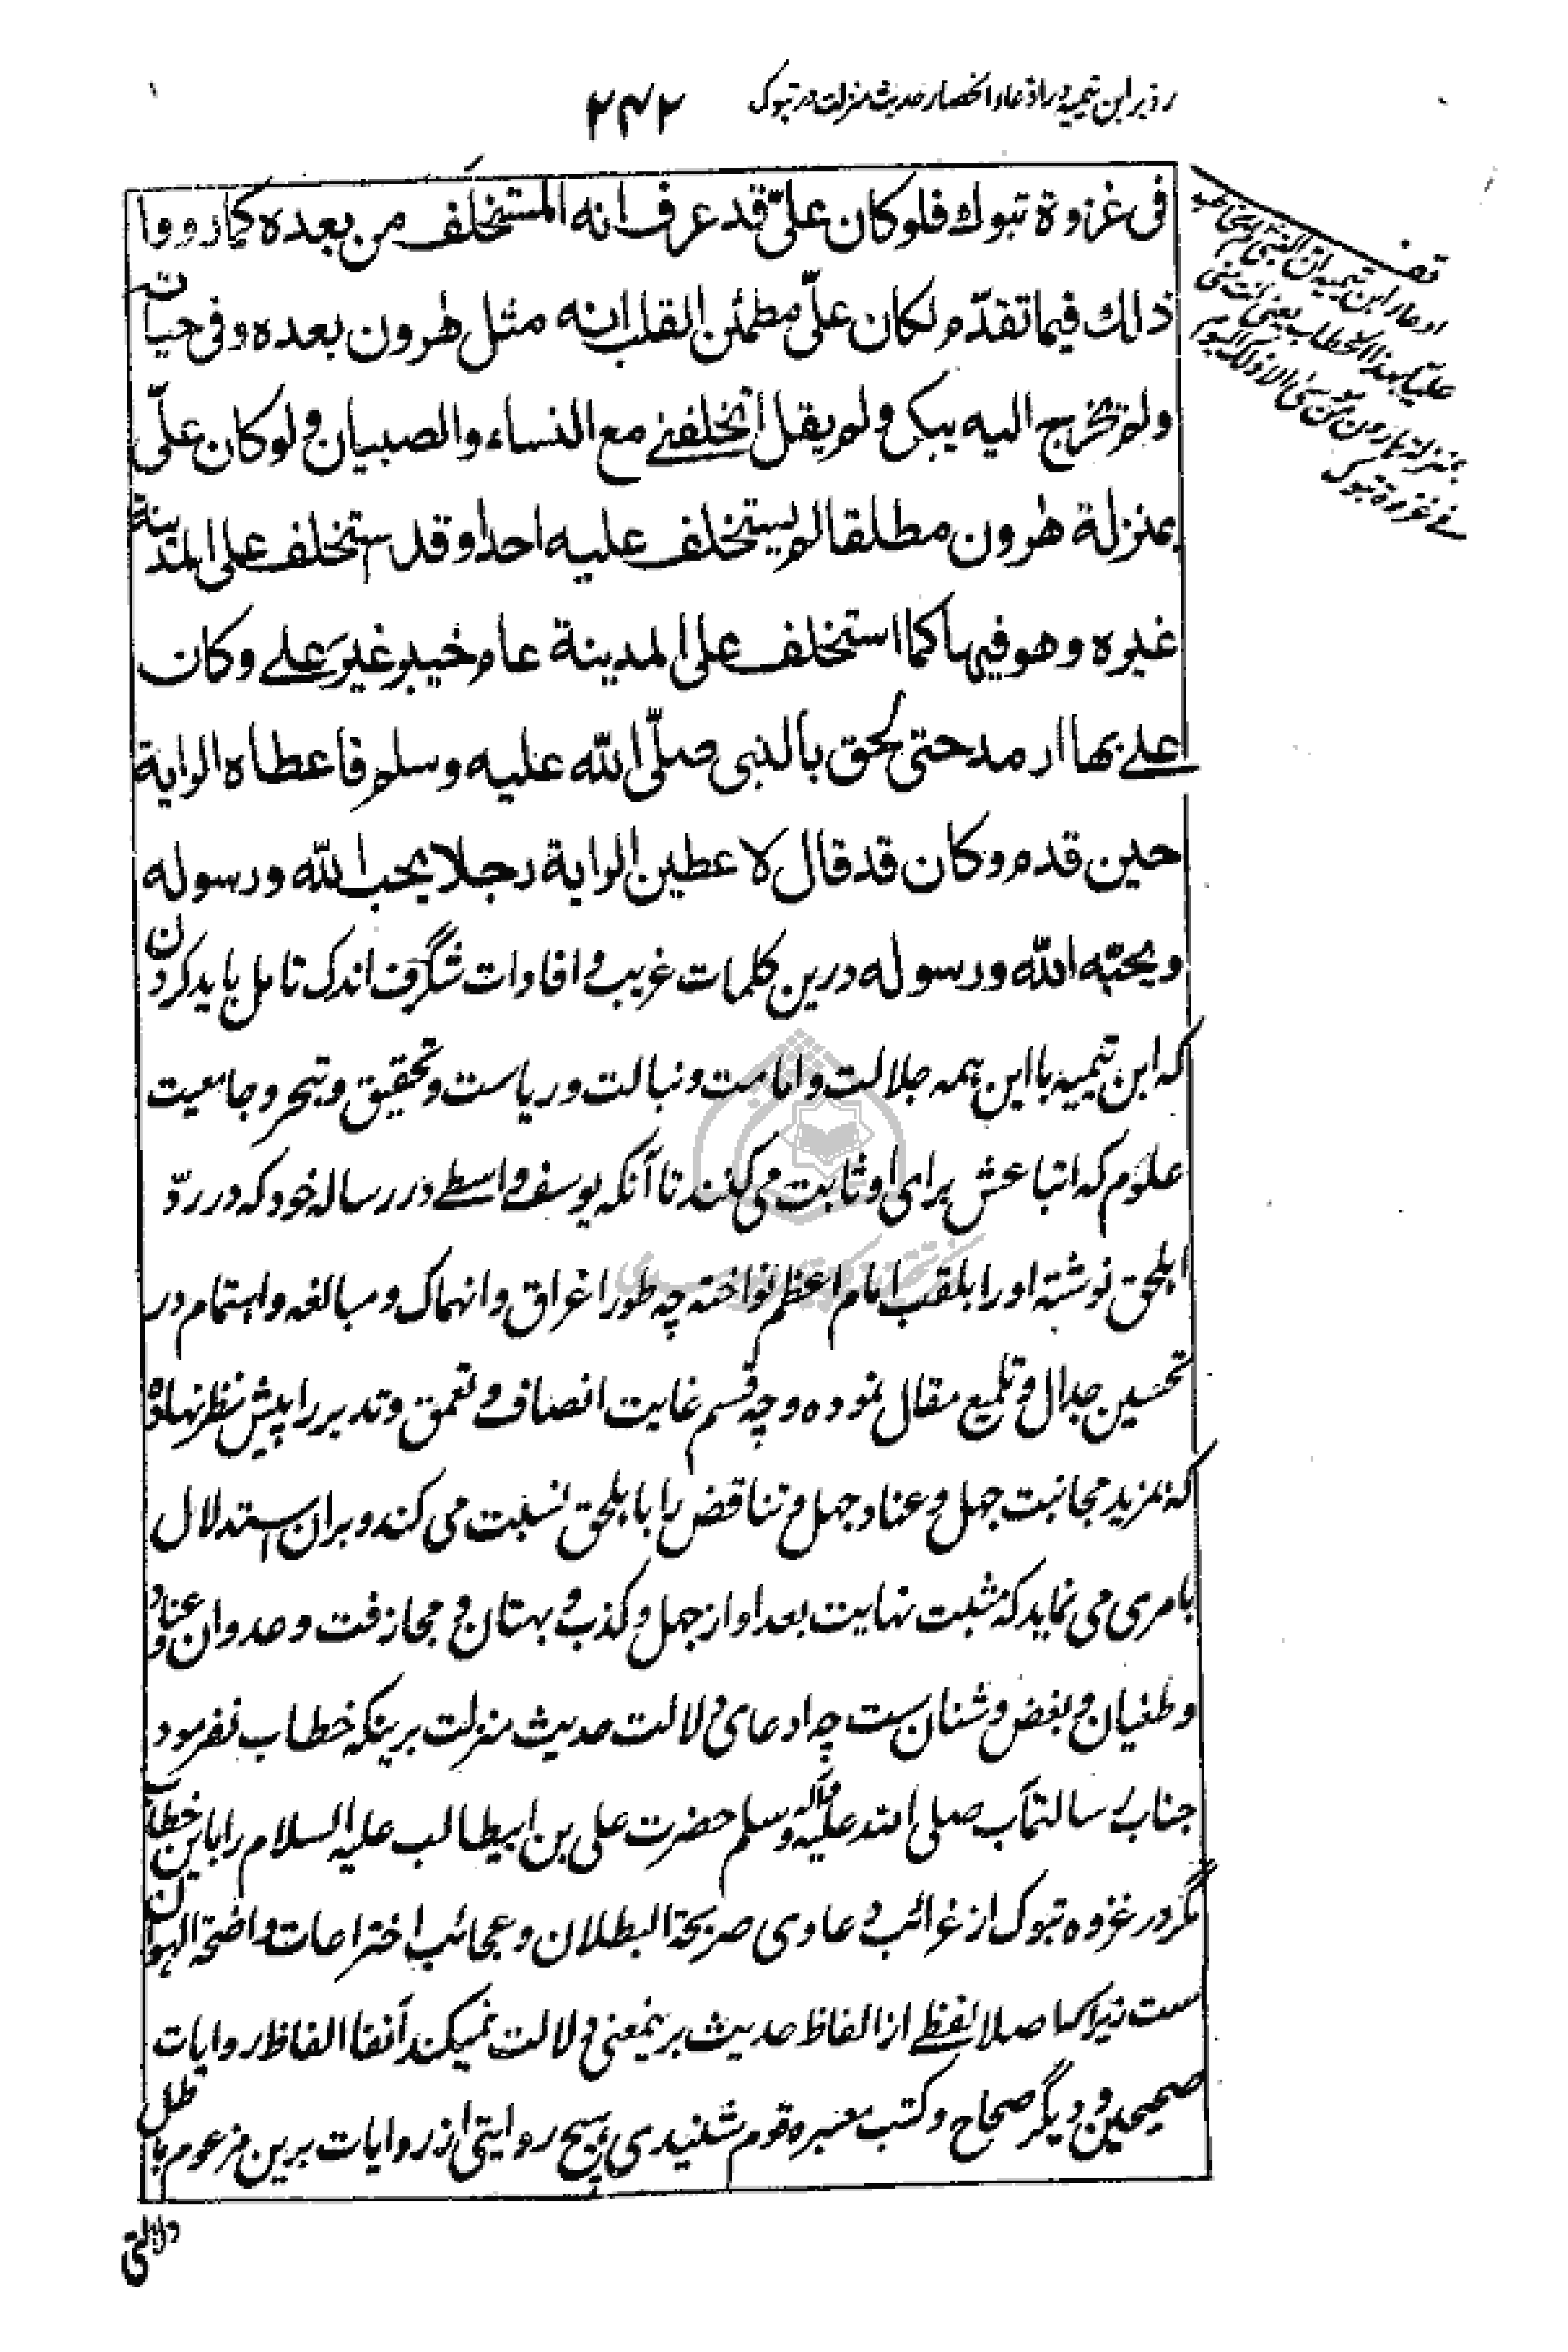 رد بر ابن تیمیه در ادعاء انحصار حدیث منزلت در تبوک
۲۴۲
فی غزوة تبوك فلوکان علیّ قد عرف انه المستخلف من بعده کما رووا
ذلك فیما تقدّم لکان علیّ مطمئن القلب انه مثل هٰرون بعده و فی حیاته
ولم یخرج الیه یبکی ولم یقل اتخلفنے مع النساء والصبیان و لوکان علیّ
بمنزلة هٰرون مطلقا لم یستخلف علیه احدا و قد استخلف علی المدینة
غیره وهو فیها کما استخلف علی المدینة عام خیبر غیرَ علے وکان
علے بها ارمد حتی لحق بالنبی صلّی اللّه علیه وسلم فاعطاه الرایة
حین قدم وکان قد قال لاعطین الرایة رجلا یحب اللّه ورسوله
ویحبّه اللّه ورسوله درین کلمات غریب و افادات شگرف اندک تامل باید کرد
که ابن تیمیه با این همه جلالت و امامت و نبالت و ریاست و تحقیق و تبحر و جامعیت
علوم که اتباعش برای او ثابت می کنند تا آنکه یوسف واسطے در رساله خود که در ردّ
اهلحق نوشته او را بلقب امام اعظم نواخته چه طور اغراق و انهماک و مبالغه و اهتمام در
تحسین جدال و تلمیع مقال نموده و چه قسم غایت انصاف و تعمق و تدبر را پیش نظر نهاده
که بمزید مجانبت جهل و عناد جهل و تناقض را باهلحق نسبت می کند و بران استدلال
بامری می نماید که مثبت نهایت بعد او از جهل و کذب و بهتان و مجازفت و عدوان و عناد
و طغیان و بغض و شنان ست چه ادعای دلالت حدیث منزلت برینکه خطاب نفرمود
جناب رسالتمآب صلی الله علیه وآله وسلم حضرت علی بن ابیطالب علیه السلام را باین خطاب
مگر در غزوه تبوک از غرائب دعاوی صریحة البطلان و عجائب اختراعات واضحة الهوان
ست زیرا که اصلا لفظے از الفاظ حدیث برینمعنی دلالت نمیکند آنفا الفاظ روایات
صحیحین و دیگر صحاح و کتب معتبره قوم شنیدی هیچ روایتی از روایات برین مزعوم باطل
دلالتی
ادعاء ابن تیمیه ان النبی لم یخاطب
علیا بهذا الخطاب یعنی انت منی
بمنزلة هارون من موسی الا ذلک الیوم
فے غزوة تبوک